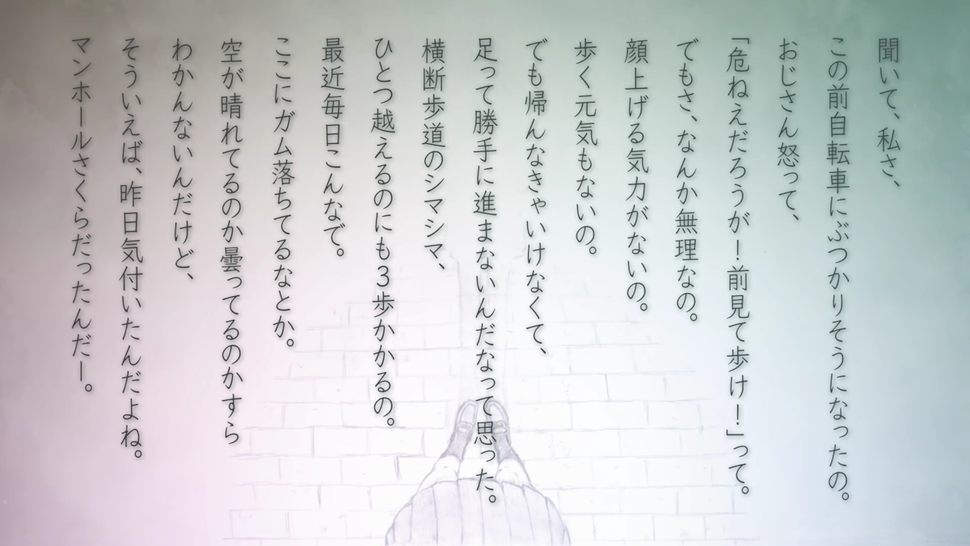 聞いて、私さ、
この前自転車にぶつかりそうになったの。
おじさん怒って、
「危ねえだろうが！前見て歩け！」って。
でもさ、なんか無理なの。
顔上げる気力がないの。
歩く元気もないの。
でも帰んなきゃいけなくて、
足って勝手に進まないんだなって思った。
横断歩道のシマシマ、
ひとつ越えるのにも３歩かかるの。
最近毎日こんなで。
ここにガム落ちてるなとか。
空が晴れてるのか曇ってるのかすら
わかんないんだけど、
そういえば、昨日気付いたんだよね。
マンホールさくらだったんだー。